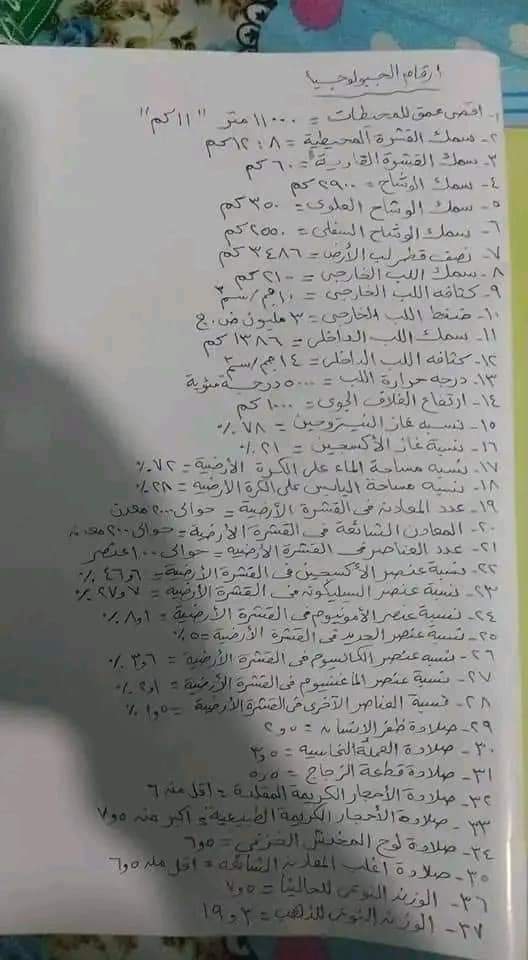 أرقام الجيولوجيا
١- اقصى عمق للمحيطات = ١١٠٠٠ متر "١١ كم"
٢- سمك القشرة المحيطية = ٨ : ١٢ كم
٣- سمك القشرة القارية = ٦٠ كم
٤- سمك الوشاح = ٢٩٠٠ كم
٥- سمك الوشاح العلوى = ٣٥٠ كم
٦- سمك الوشاح السفلى = ٢٥٥٠ كم
٧- نصف قطر لب الأرض = ٣٤٨٦ كم
٨- سمك اللب الخارجى = ٢١٠٠ كم
٩- كثافه اللب الخارجى = ١٠ جم/سم٣
١٠- ضغط اللب الخارجى = ٣ مليون ض.ج
١١- سمك اللب الداخلى = ١٣٨٦ كم
١٢- كثافه اللب الداخلى = ١٤ جم/سم٣
١٣- درجه حرارة اللب = ٥٠٠٠ درجة مئوية
١٤- ارتفاع الغلاف الجوى = ١٠٠٠ كم
١٥- نسبه غاز النيتروجين = ٧٨٪
١٦- نسبة غاز الأكسجين = ٢١٪
١٧- نسبه مساحة الماء على الكرة الأرضية = ٧٢٪
١٨- نسبه مساحة اليابس على الكرة الأرضيه = ٢٨٪
١٩- عدد المعادن فى القشرة الأرضية = حوالى ٢٠٠٠ معدن
٢٠- المعادن الشائعة فى القشرة الأرضية = حوالى ٢٠٠ معدن
٢١- عدد العناصر فى القشرة الأرضيه = حوالى ١٠٠ عنصر
٢٢- نسبة عنصر الأكسجين فى القشرة الأرضية = ٤٦و٦٪
٢٣- نسبة عنصر السليكون فى القشرة الأرضيه = ٢٧و٧٪
٢٤- نسبة عنصر الألومونيوم فى القشرة الأرضية = ٨و١٪
٢٥- نسبة عنصر الحديد فى القشرة الأرضية = ٥٪
٢٦- نسبه عنصر الكالسيوم فى القشرة الأرضية = ٣و٦٪
٢٧- نسبة عنصر الماغنسيوم فى القشرة الأرضية = ٢و١٪
٢٨- نسبة العناصر الآخرى فى القشرة الأرضية = ١و٥٪
٢٩- صلادة ظفر الإنسان = ٢و٥
٣٠- صلادة العملة النحاسيه = ٣و٥
٣١- صلادة قطعة الزجاج = ٥و٥
٣٢- صلادة الأحجار الكريمة المقلدة = أقل من ٦
٣٣- صلادة الأحجار الكريمة الطبيعية = أكبر من ٧و٥
٣٤- صلادة لوح المخدش الخزفى = ٦و٥
٣٥- صلادة أغلب المعادن الشائعه = أقل من ٦و٥
٣٦- الوزن النوعى للجالينا = ٧و٥
٣٧- الوزن النوعى للذهب = ١٩و٣